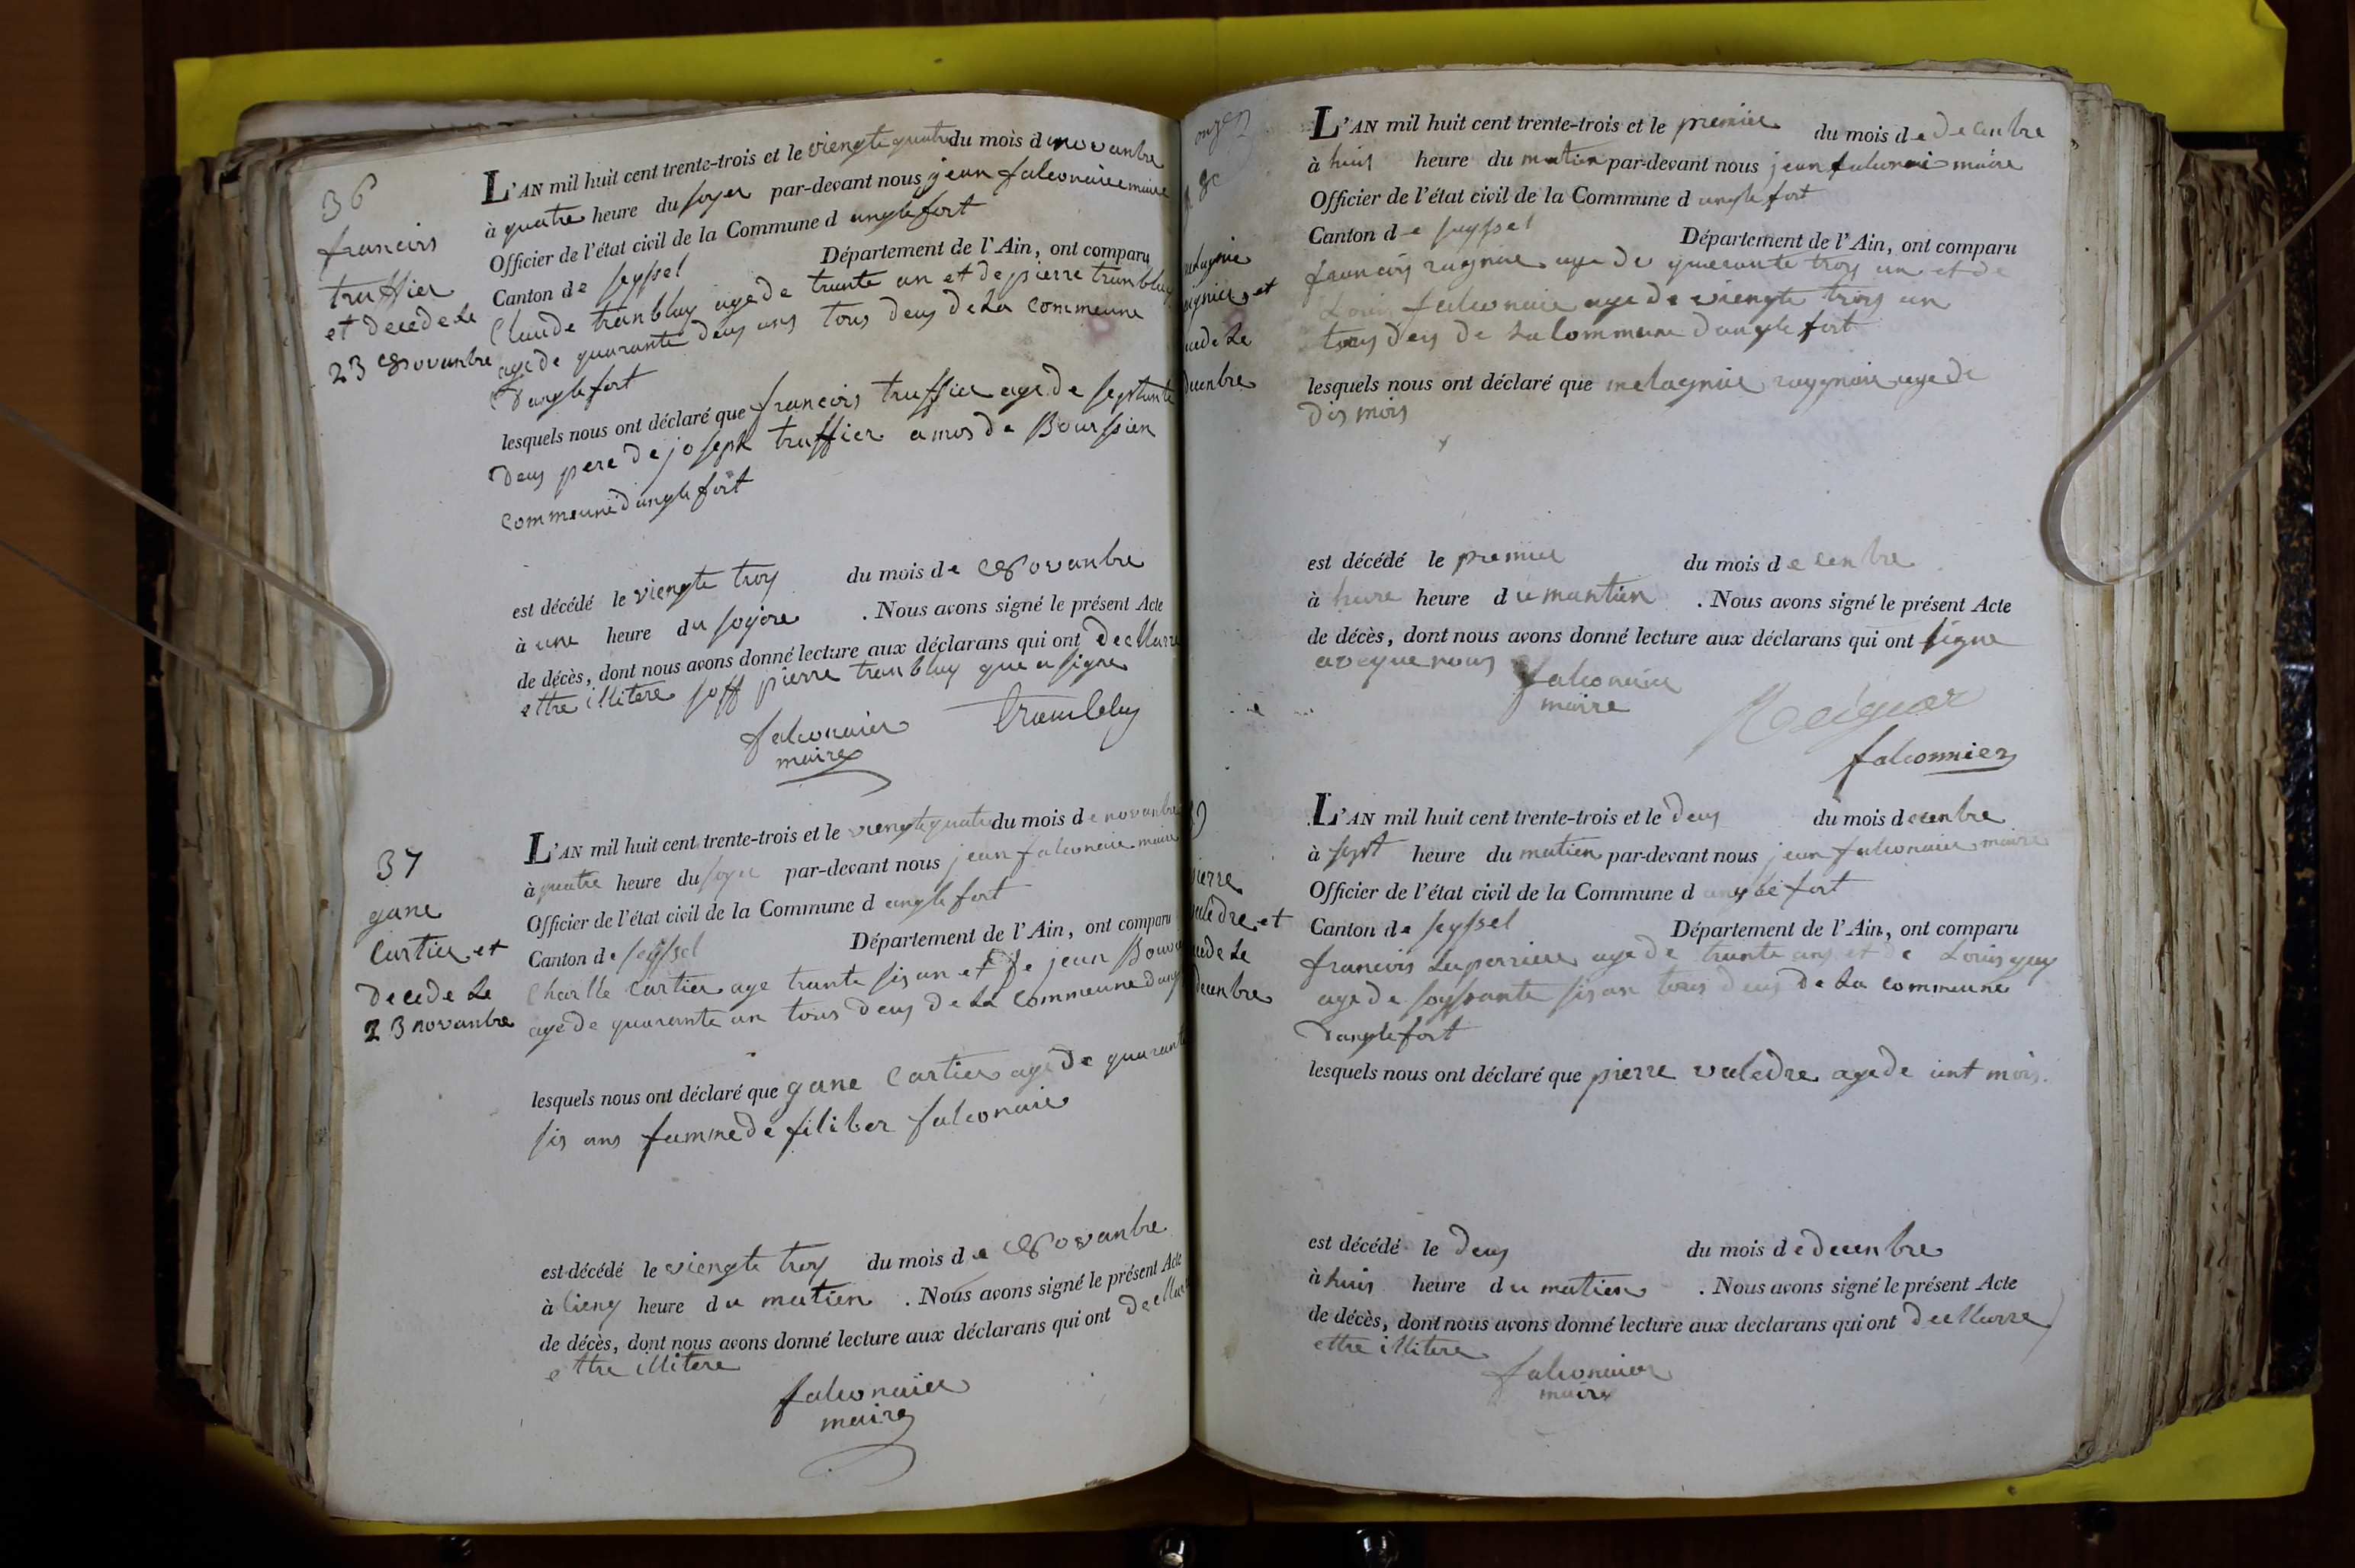 36
francois
truffier
et decede le
23 Novanbre
L'AN mil huit cent trente-trois et le viengte quatre du mois d novanbre
à quatre heure du soyer par-devant nous jean falconaiee maire
Officier de l'état civil de la Commune d anglefort
Canton de seyssel Département de l'Ain, ont comparu
Claude tranbluy age de trante an et de pierre tranbluy
age de quarante deus ans tous deus de La commeune
Danglefort
lesquels nous ont déclaré que francois truffier age de septante
deus pere de joseph truffier a mos de Boursien
commeune danglefort
est décédé le viengte troy du mois de Novanbre
à une heure du soyere . Nous avons signé le présent Acte
de décès, dont nous avons donné lecture aux déclarans qui ont decllarre
ettre illitere soff pierre tranbluy que a signe
falconaier tranbluy
maire
37
gane
Cartier et
decede Le
23 novanbre
L'AN mil huit cent trente-trois et le viengte quatre du mois de novanbre
à quatre heure du soyer par-devant nous jean falconaie maire
Officier de l'état civil de la Commune d anglefort
Canton de seyssel Département de l'Ain, ont comparu
Charlle Cartier age trante sis an et de jean
age de quarante an tous deus de La commeune
lesquels nous ont déclaré que gane Cartier age de quarante
sis ans famme de filiber falconaie
est décédé le viengte troy du mois de Novanbre
à cienq heure du matien . Nous avons signé le présent Acte
de décès, dont nous avons donné lecture aux déclarans qui ont
ettre illitere
falconaier
maire
et
decenbre
L'AN mil huit cent trente-trois et le premier du mois de decenbre
à huis heure du matien par-devant nous jean falconai maire
Officier de l'état civil de la Commune d anglefort
Canton de seyssel Département de l'Ain, ont comparu
francois ragnier age de quarante troy an et de
Louis falconaie age de viengte troys an
tous deus de La Commeune danglefort
lesquels nous ont déclaré que melagnie raygnier age de
dis mois
est décédé le premier du mois de cenbre
à heure du mantien . Nous avons signé le présent Acte
de décès, dont nous avons donné lecture aux déclarans qui ont signe
aveque nous falconaier
maire
falconnier
pierre
valedre et
decenbre
L'AN mil huit cent trente-trois et le deus du mois decenbre
à sept heure du matien par-devant nous jean falconaier maire
Officier de l'état civil de la Commune d anglefort
Canton de seyssel Département de l'Ain, ont comparu
francois Laperriere age de trante ans et de Louis guy
age de soyssante sis an tous deus de La commeune
danglefort
lesquels nous ont déclaré que pierre valedre age de unt mois.
est décédé le deus du mois de decenbre
à huis heure du matien . Nous avons signé le présent Acte
de décès, dont nous avons donné lecture aux declarans qui ont decllarre
ettre illitere
falconaier
maire